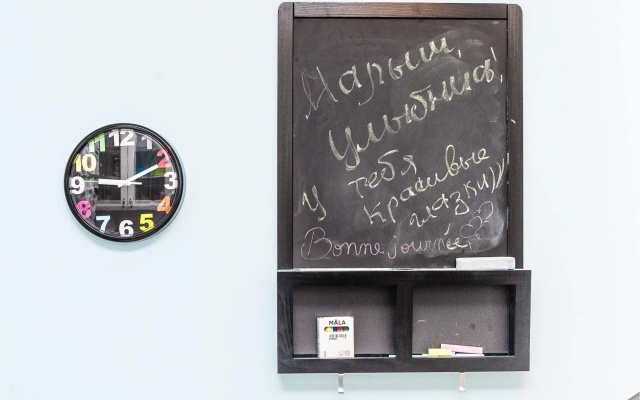 Марыш,
Улыбнись!
У тебя
красивые
глазки)))
Bonne journée
12
1
2
3
4
5
6
7
8
9
10
11
MÅLA